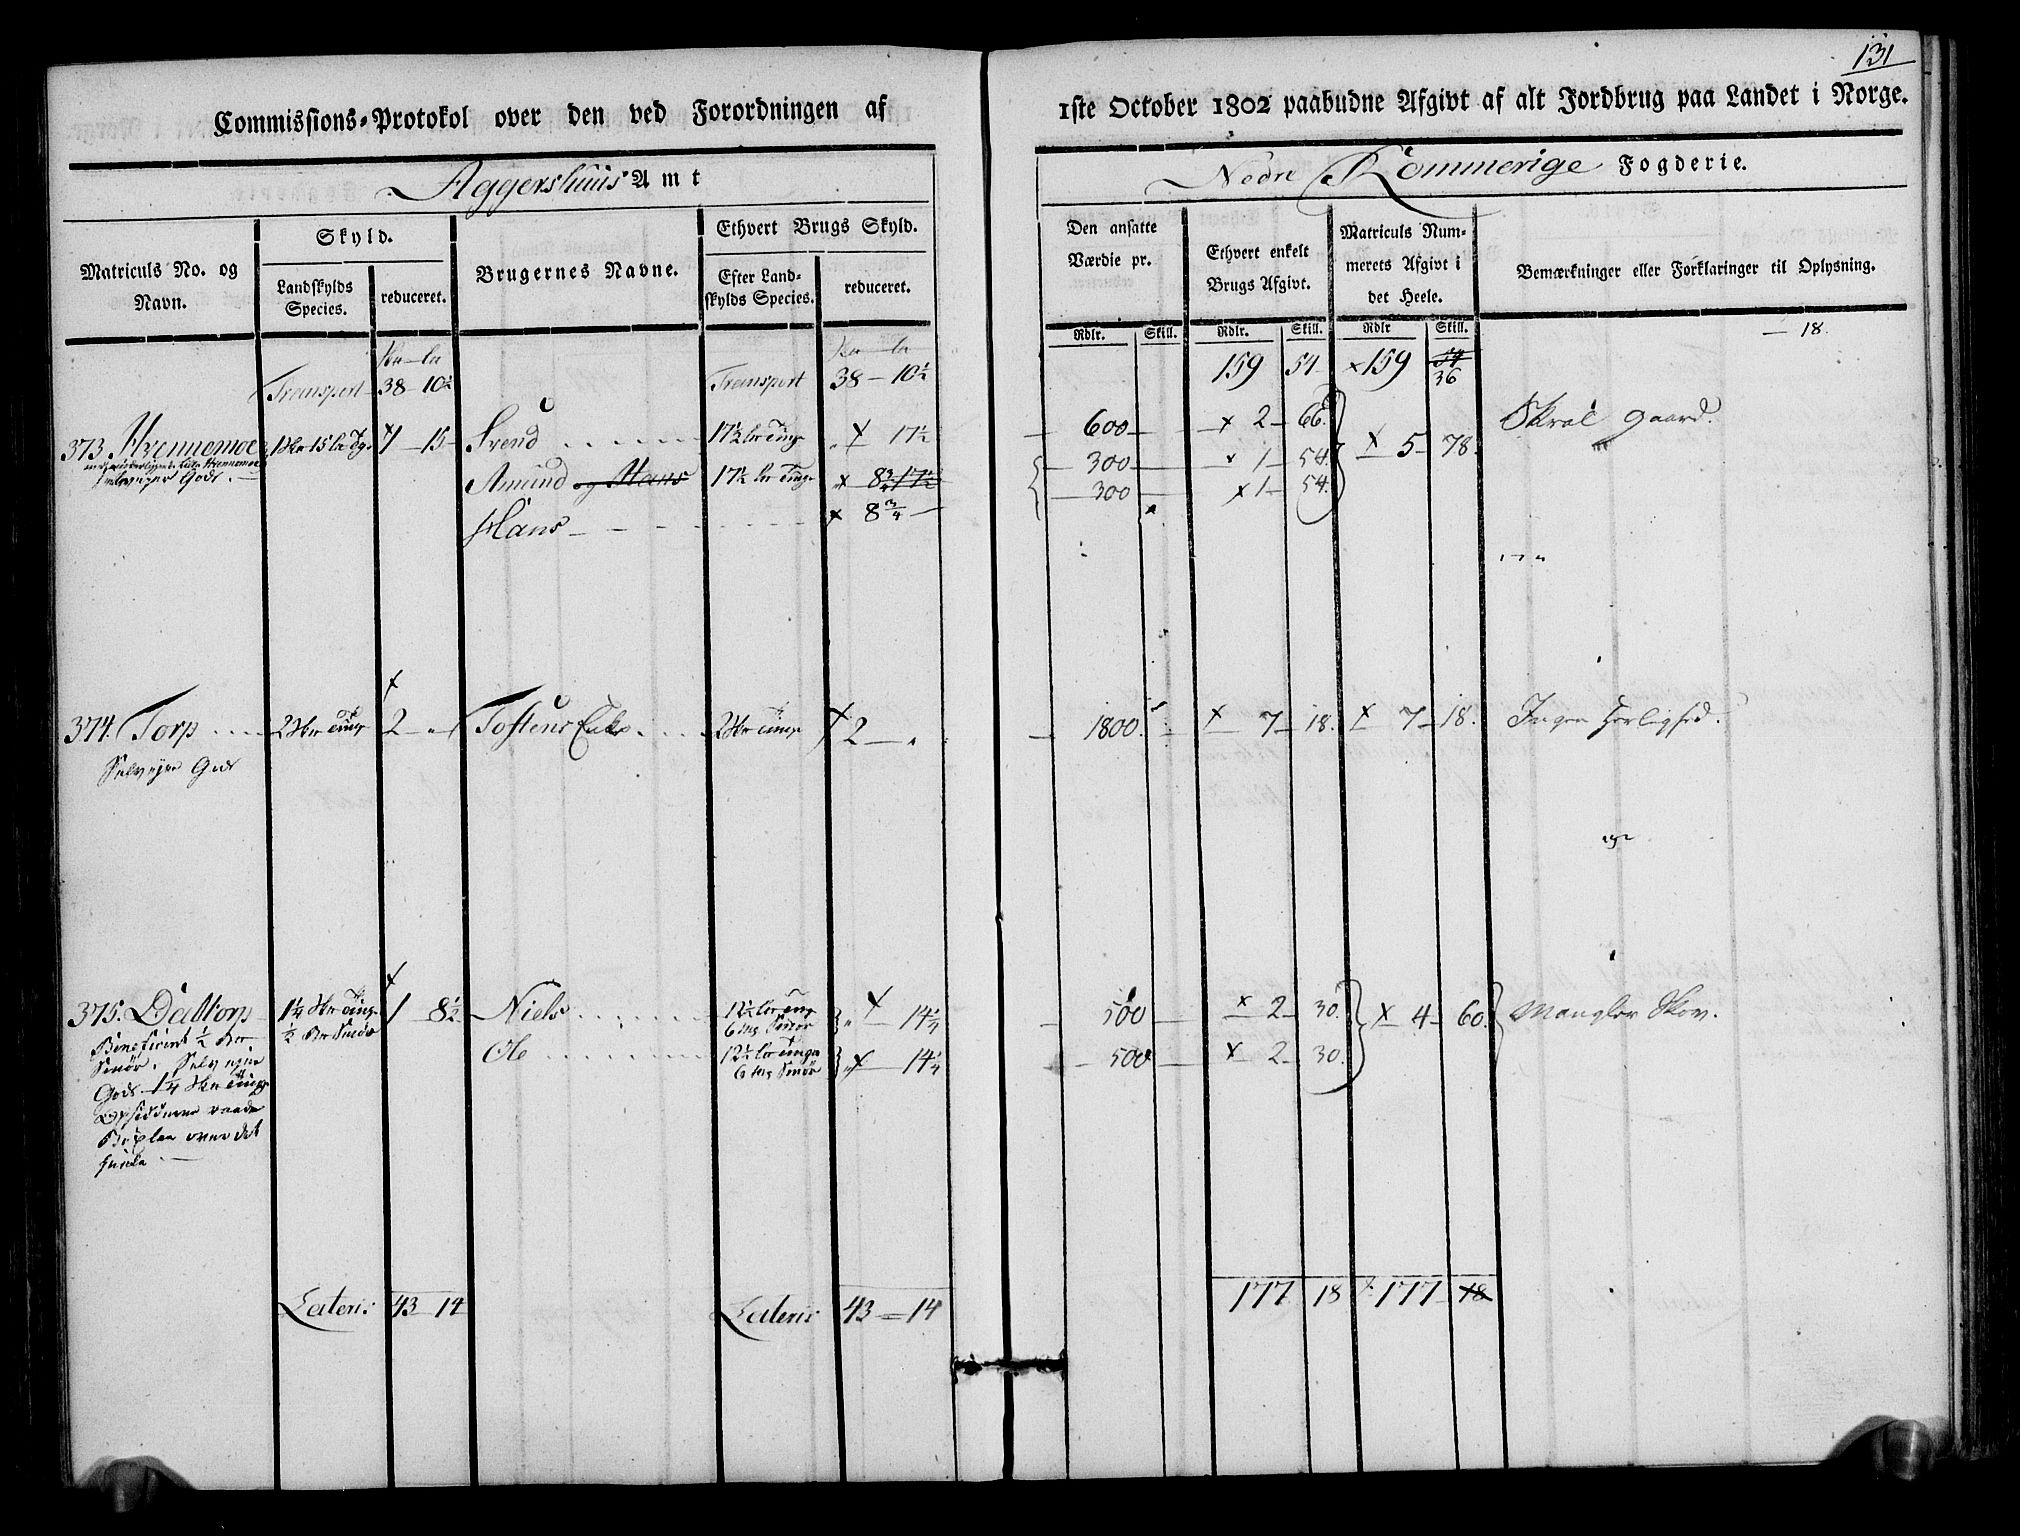 131
Commissions-Protokol over den ved Forordningen af 1ste October 1802 paabudne Afgivt af alt Jordbrug paa Landet i Norge.
Aggershuus Amt
Nedre Rommerige Fogderie.
Matriculs No. og Navn.
Skyld.
Landskylds Species.
reduceret.
Brugernes Navne.
Ethvert Brugs Skyld.
Efter Landskylds Species.
reduceret.
Den ansatte Værdie pr.
Rdlr. Skill.
Ethvert enkelt Brugs Afgivt.
Rdlr. Skill.
Matriculs Nummerets Afgivt i det Heele.
Rdlr Skill.
Bemærkninger eller Forklaringer til Oplysning.
— 18.
Transport 38 — 10½ Transport 38 — 10½ 159 54 × 159 54
36
373. Hvennemoe 1 15 Svend 17½ 17½ 600 × 2 — 66 × 5 — 78. Skral gaard.
Selveyer Gods. Amund og Hans 17½ × 8¾ 17½ 300 × 1 — 54.
Hans × 8¾ 300 × 1 — 54.
374. Torp 2 Tostens Enke 2 1800. × 7 — 18. × 7 — 18. Ingen Herlighed.
Selveyer Gods
375. Dalltorp 1¼ 1 8½ Niels 12½ 14¼ 500 × 2 — 30. × 4 — 60. Mangler Skov.
Beneficeret ½ ½ 6 Smør
Smør. Selveyer Ole 12½ × 14¼ 500 × 2 — 30.
Gods 1¼ 6 Smør
Opsidderne raader
over det
heele
Lateris 43 14 Lateris 43 — 14 177 18 × 177 18